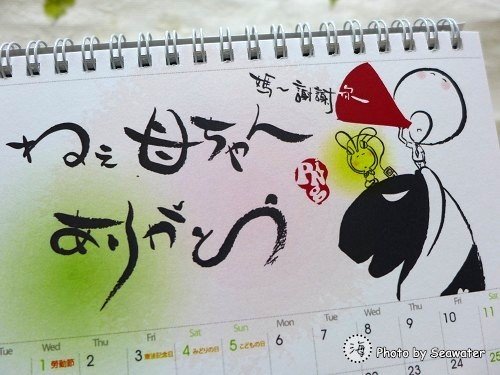 媽~謝謝你~
ねぇ 母ちゃん
ありがとう
PiNe
Tue Wed Thu Fri Sat Sun Mon Tue Wed Thu Fri Sat
1 勞動節 2 3 憲法記念日 4 みどりの日 5 こどもの日 6 7 8 9 10 11
海 Photo by Seawater